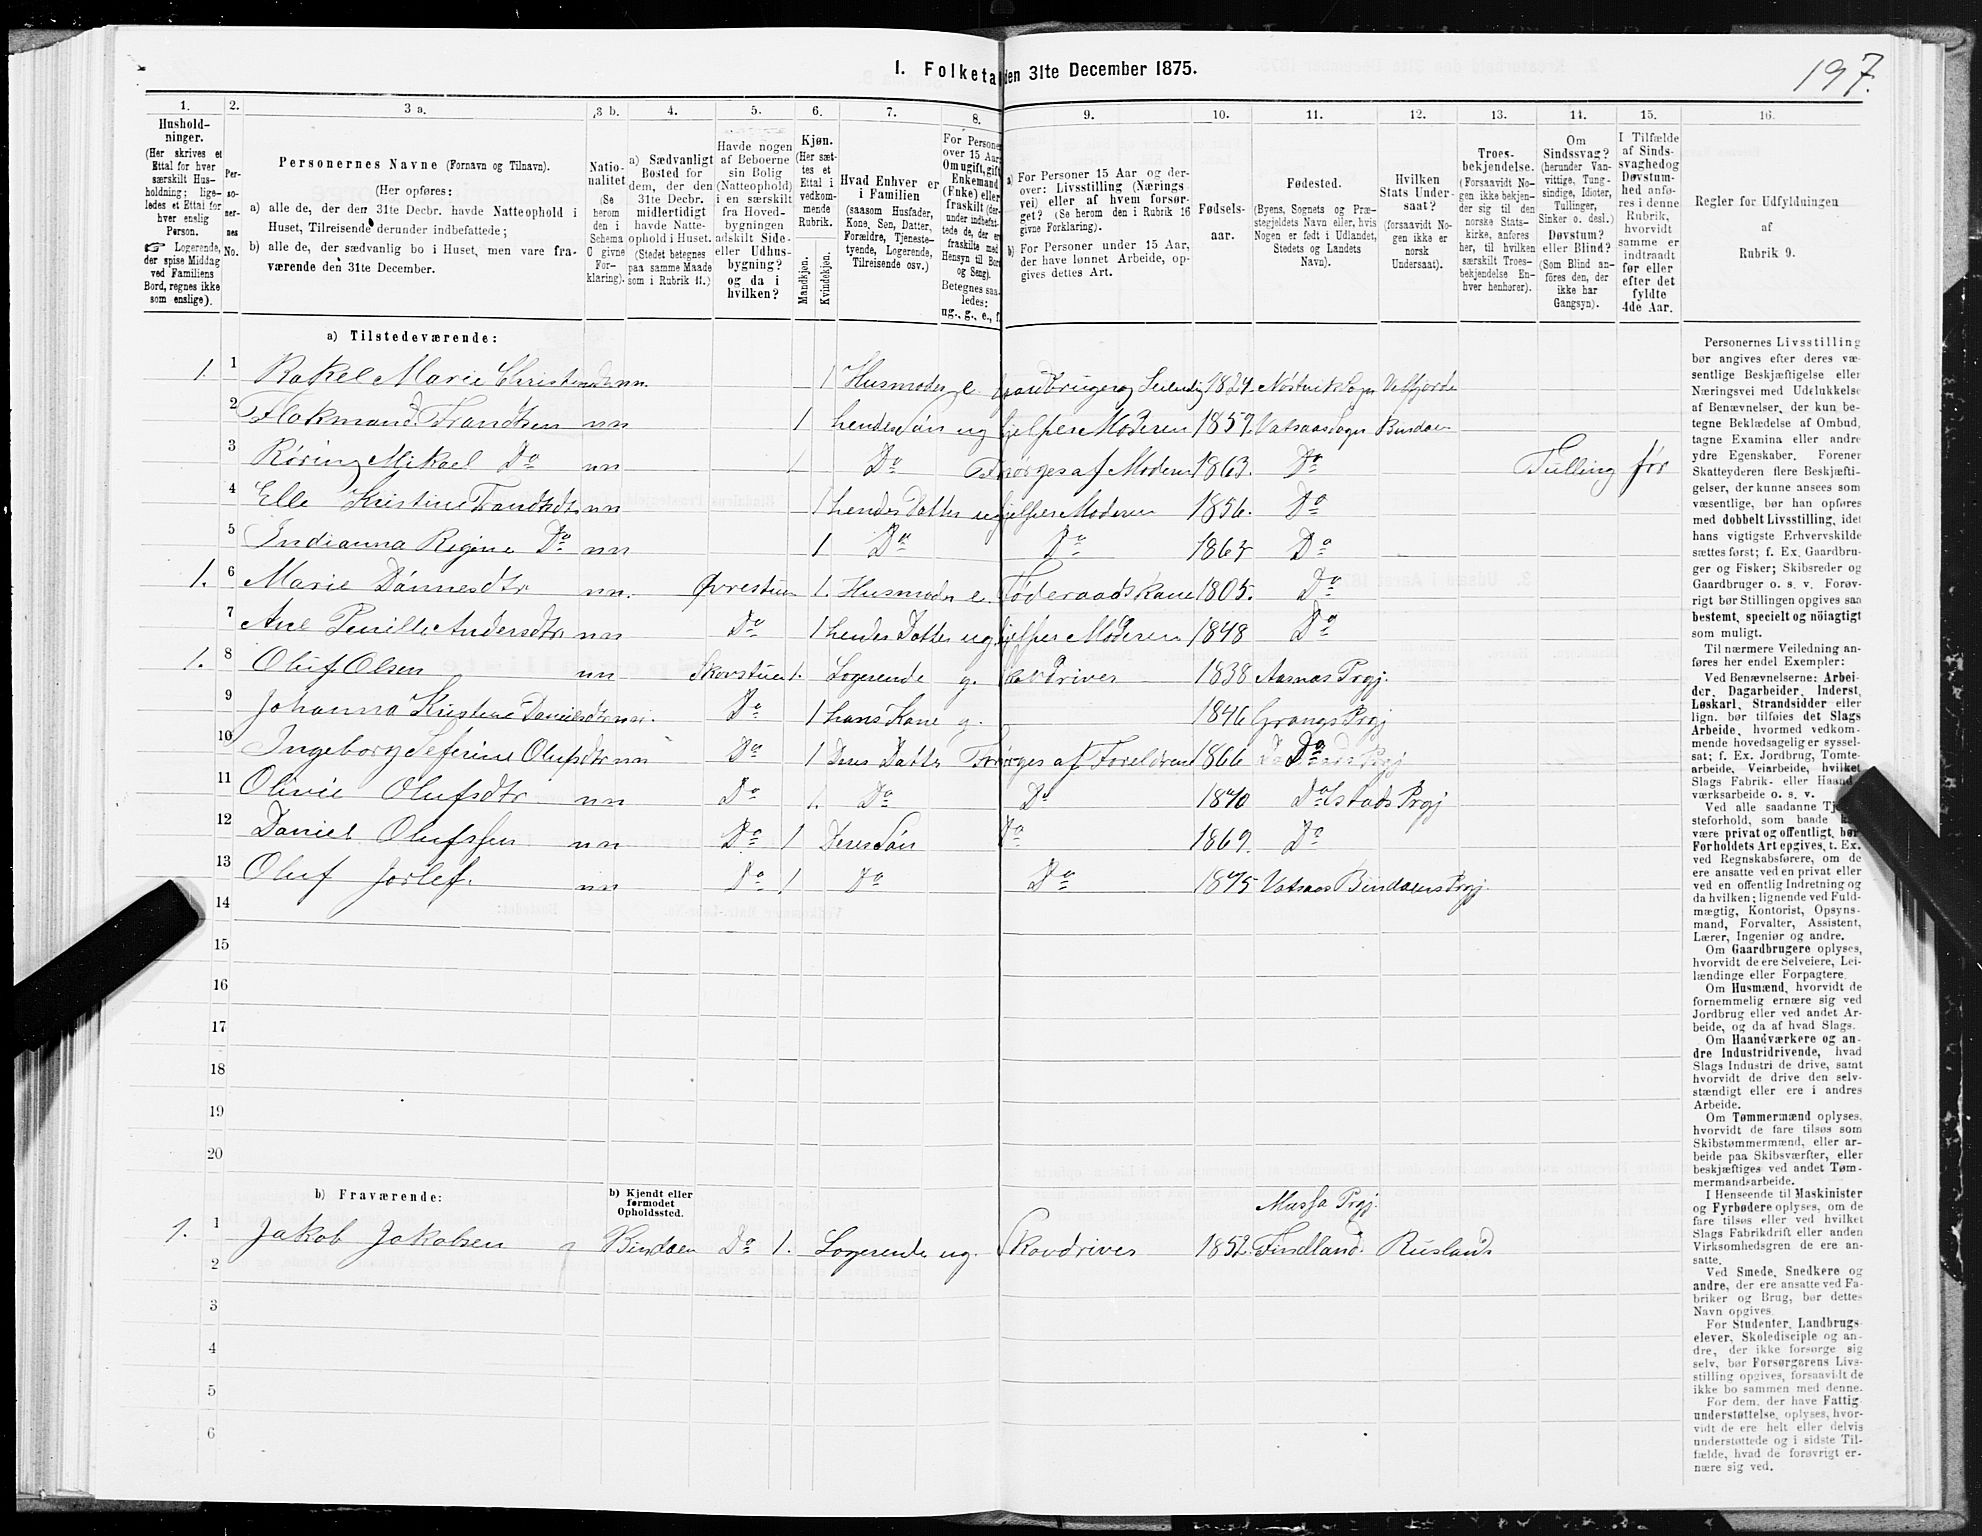 197.
I. Folketa den 31te December 1875.
1. 2. 3 a. 3 b. 4. 5. 6. 7. 8. 9. 10. 11. 12. 13. 14. 15. 16.
Hushold-
ninger.
(Her skrives et
Ettal for hver
særskilt Hus-
holdning; lige-
ledes et Ettal for
hver enslig
Person.
☞ Logerende,
der spise Middag
ved Familiens
Bord, regnes ikke
som enslige).
Per-
so-
ner-
nes
No.
Personernes Navne (Fornavn og Tilnavn).
(Her opføres:
a) alle de, der den 31te Decbr. havde Natteophold i
Huset, Tilreisende derunder indbefattede;
b) alle de, der sædvanlig bo i Huset, men vare fra-
værende den 31te December.
Natio-
nalitet
(Se
herom
den i
Schema
C givne
For-
klaring).
a) Sædvanligt
Bosted for
dem, der den
31te Decbr.
midlertidigt
havde Natte-
ophold i Huset.
(Stedet betegnes
paa samme Maade
som i Rubrik 11.)
Havde nogen
af Beboerne
sin Bolig
(Natteophold)
i en særskilt
fra Hoved-
bygningen
adskilt Side-
eller Udhus-
bygning?
og da i
hvilken?
Kjøn.
(Her sæt-
tes et
Ettal i
vedkom-
mende
Rubrik.
Mandkjøn.
Kvindekjøn.
Hvad Enhver er
i Familien
(saasom Husfader,
Kone, Søn, Datter,
Forældre, Tjeneste-
tyende, Logerende,
Tilreisende osv.)
For Persone
over 15 Aar
Om ugift, gift,
Enkemand
(Enke) eller
fraskilt (der-
under indbefat-
tede de, der er
fraskilte med
Hensyn til Bord
og Seng).
Betegnes saa-
ledes:
ug., g., e., f.
a) For Personer 15 Aar og der-
over: Livsstilling (Nærings-
vei) eller af hvem forsør-
get? (Se herom den i Rubrik 16
givne Forklaring).
b) For Personer under 15 Aar,
der have lønnet Arbeide, op-
gives dettes Art.
Fødsels-
aar.
Fødested.
(Byens, Sognets og Præ-
stegjeldets Navn eller, hvis
Nogen er født i Udlandet,
Stedets og Landets
Navn).
Hvilken
Stats Under-
saat?
(forsaavidt No-
gen ikke er
norsk
Undersaat).
Troes-
bekjendelse.
(Forsaavidt No-
gen ikke bekjen-
der sig til den
norske Stats-
kirke, anføres
her, til hvilken
særskilt Troes-
bekjendelse En-
hver henhører).
Om
Sindssvag?
(herunder Van-
vittige, Tung-
sindige, Idioter,
Tullinger,
Sinker o. desl.)
Døvstum?
eller Blind?
(Som Blind an-
føres den, der
ikke har
Gangsyn).
I Tilfælde
af Sinds-
svaghed og
Døvstum-
hed anfø-
res i denne
Rubrik,
hvorvidt
samme er
indtraadt
før eller
efter det
fyldte
4de Aar.
Regler for Udfyldningen
af
Rubrik 9.
a) Tilstedeværende:
1. 1 Rakel Marie nn. 1 Husmoder e. 1824
2 nn 1 hendes Søn ug hjelper Moderen 1857. Vatsaas Sogn Bindalen
3 Røring Mikael Do nn 1 Do Forsørges af Moderen 1863. Do Tulling før
4 Elle Kristine nn 1 hendes Datter ug hjelper Moderen 1856. Do
5 Indianna Regine Do nn 1 Do Do Do
1. 6 Marie nn. Øvrestuen 1. Husmoder e. Føderaadskone 1805. Do
7 Ane Pernille Andersdtr nn Do 1 hendes Datter ug hjelper Moderen 1848 Do
1. 8 Oluf Olsen nn Skovstuen 1. Logerende g. Skovdriver 1838 Prgj.
9 Johanna Kristine Danielsdtr nn. Do 1 hans Kone g. 1846 Prgj
10 Ingeborg Seferine Olufsdtr nn Do 1 Deres Datter Forsørges af Foreldrene 1866 Do
11 Olivie Olufsdtr nn Do 1. Do Do 1870 Prgj
12 Daniel Olufssen nn Do 1 Deres Søn Do 1869. Do
13 Oluf nn Do 1 Do Do 1875 Vatsaas Bindalens Prgj.
14
15
16
17
18
19
20
b) Fraværende:
b) Kjendt eller
formodet
Opholdssted.
Prgj.
1. 1 Jakob Jakobsen Bindalen Do 1. Logerende ug. Skovdriver 1852. Findland. Rusland
2
3
4
5
6
Personernes Livsstilling
bør angives efter deres væ-
sentlige Beskjæftigelse eller
Næringsvei med Udelukkelse
af Benævnelser, der kun be-
tegne Beklædelse af Ombud,
tagne Examina eller andre
ydre Egenskaber. Forener
Skatteyderen flere Beskjæfti-
gelser, der kunne ansees som
væsentlige, bør han opføres
med dobbelt Livsstilling, idet
hans vigtigste Erhvervskilde
sættes først; f. Ex. Gaardbru-
ger og Fisker; Skibsreder og
Gaardbruger o. s. v. Forøv-
rigt bør Stillingen opgives saa
bestemt, specielt og nöiagtigt
som muligt.
Til nærmere Veiledning an-
føres her endel Exempler:
Ved Benævnelserne: Arbei-
der, Dagarbeider, Inderst,
Løskarl, Strandsidder eller
lign. bør tilføies det Slags
Arbeide, hvormed vedkom-
mende hovedsagelig er syssel-
sat; f. Ex. Jordbrug, Tomte-
arbeide, Veiarbeide, hvilket
Slags Fabrik- eller Haand-
værksarbeide o. s. v.
Ved alle saadanne Tje-
steforhold, som baade k
være privat og offentligt, bør
Forholdets Art opgives, f. Ex.
ved Regnskabsførere, om de
ere ansatte ved en privat eller
ved en offentlig Indretning og
da hvilken; lignende ved Fuld-
mægtig, Kontorist, Opsyns-
mand, Forvalter, Assistent,
Lærer, Ingeniør og andre.
Om Gaardbrugere oplyses,
hvorvidt de ere Selveiere, Lei-
lændinge eller Forpagtere.
Om Husmænd, hvorvidt de
fornemmelig ernære sig ved
Jordbrug eller ved andet Ar-
beide, og da af hvad Slags.
Om Haandværkere og an-
dre Industridrivende, hvad
Slags Industri de drive, samt
hvorvidt de drive den selv-
stændigt eller ere i andres
Arbeide.
Om Tømmermænd oplyses,
hvorvidt de fare tilsøs som
Skibstømmermænd, eller ar-
beide paa Skibsværfter, eller
beskjæftiges ved andet Tøm-
mermandsarbeide.
I Henseende til Maskinister
og Fyrbødere oplyses, om de
fare tilsøs eller ved hvilket
Slags Fabrikdrift eller anden
Virksomhedsgren de ere an-
satte.
Ved Smede, Snedkere og
andre, der ere ansatte ved Fa-
briker og Brug, bør dettes
Navn opgives.
For Studenter, Landbrugs-
elever, Skoledisciple og an-
dre, der ikke forsørge sig
selv, bør Forsørgerens Livs-
stilling opgives, forsaavidt de
ikke bo sammen med denne.
For dem, der have Fattig-
understøttelse, oplyses, hvor-
vidt de ere helt eller delvis
understøttede og i sidste Til-
fælde, hvad de forøvrigt er-
nære sig ved.